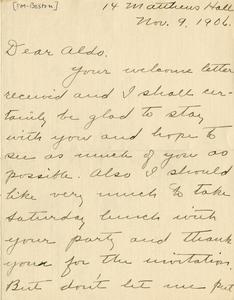 [PM-Boston]
14 Matthews Hall
Nov. 9, 1906.
Dear Aldo,
Your welcome letter
received and I shall cer-
tainly be glad to stay
with you and hope to
see as much of you as
possible. Also I should
like very much to take
Saturday lunch with
your party and thank
you for the invitation.
But don't let me put